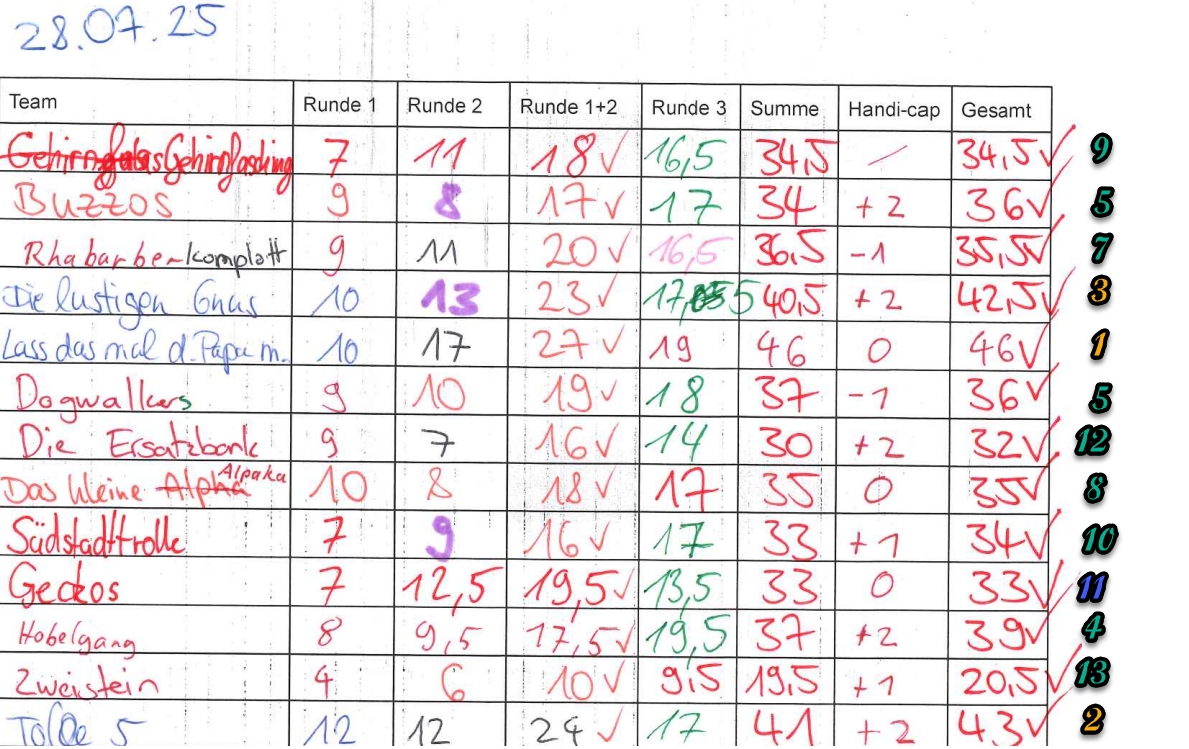 28.07.25
Team Runde 1 Runde 2 Runde 1+2 Runde 3 Summe Handi-cap Gesamt
Gehirnfasching 7 11 18 ✓ 16,5 34,5 / 34,5 ✓ 9
Buzzos 9 8 17 ✓ 17 34 +2 36 ✓ 5
Rhabarberkomplott 9 11 20 ✓ 16,5 36,5 -1 35,5 ✓ 7
Die lustigen Gnus 10 13 23 ✓ 17,5 40,5 +2 42,5 ✓ 3
Lass das mal d. Papa m. 10 17 27 ✓ 19 46 0 46 ✓ 1
Dogwalkers 9 10 19 ✓ 18 37 -1 36 ✓ 5
Die Ersatzbank 9 7 16 ✓ 14 30 +2 32 ✓ 12
Das kleine Alpha Alpaka 10 8 18 ✓ 17 35 0 35 ✓ 8
Südstadttrolle 7 9 16 ✓ 17 33 +1 34 ✓ 10
Geckos 7 12,5 19,5 ✓ 13,5 33 0 33 ✓ 11
Hobelgang 8 9,5 17,5 ✓ 19,5 37 +2 39 ✓ 4
Zweistein 4 6 10 ✓ 9,5 19,5 +1 20,5 ✓ 13
5 12 12 24 ✓ 17 41 +2 43 ✓ 2